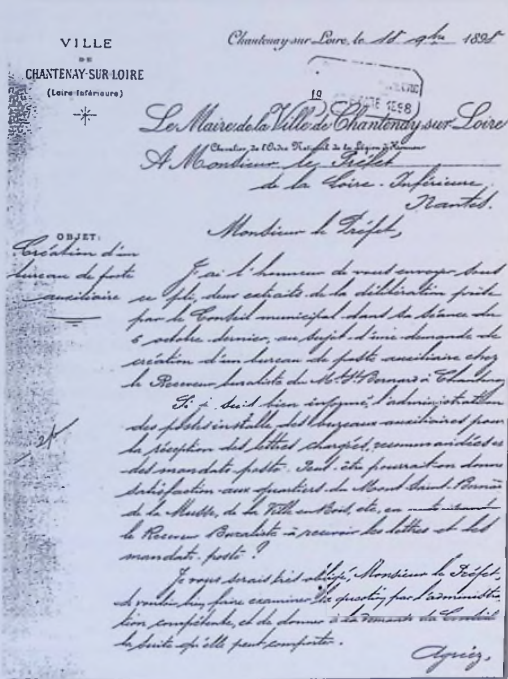 VILLE
DE
CHANTENAY-SUR-LOIRE
(Loire-Inférieure)
Chantenay-sur-Loire, le 18 9bre 1898
Le Maire de la Ville de Chantenay-sur-Loire
Chevalier de l'Ordre National de la Légion d'Honneur
A Monsieur le Préfet
de la Loire-Inférieure,
Nantes.
OBJET:
Création d'un
bureau de poste
auxiliaire
Monsieur le Préfet,
J'ai l'honneur de vous envoyer sous
ce pli, deux extraits de la délibération prise
par le Conseil municipal dans sa séance du
6 octobre dernier, au sujet d'une demande de
création d'un bureau de poste auxiliaire chez
le Receveur buraliste du Mt St Bernard à Chantenay
Si je suis bien informé, l'administration
des postes installe des bureaux auxiliaires pour
la réception des lettres chargées, recommandées et
des mandats-poste. Peut-être pourrait-on donner
satisfaction aux quartiers du Mont Saint-Bernard
de la Musse, de la Ville-en-Bois, etc, en
le Receveur Buraliste à recevoir les lettres et les
mandats-poste?
Je vous serais très obligé, Monsieur le Préfet,
de vouloir bien faire examiner la question par l'administra-
tion compétente, et de donner à la demande du Conseil
la suite qu'elle peut comporter.
Agréez,